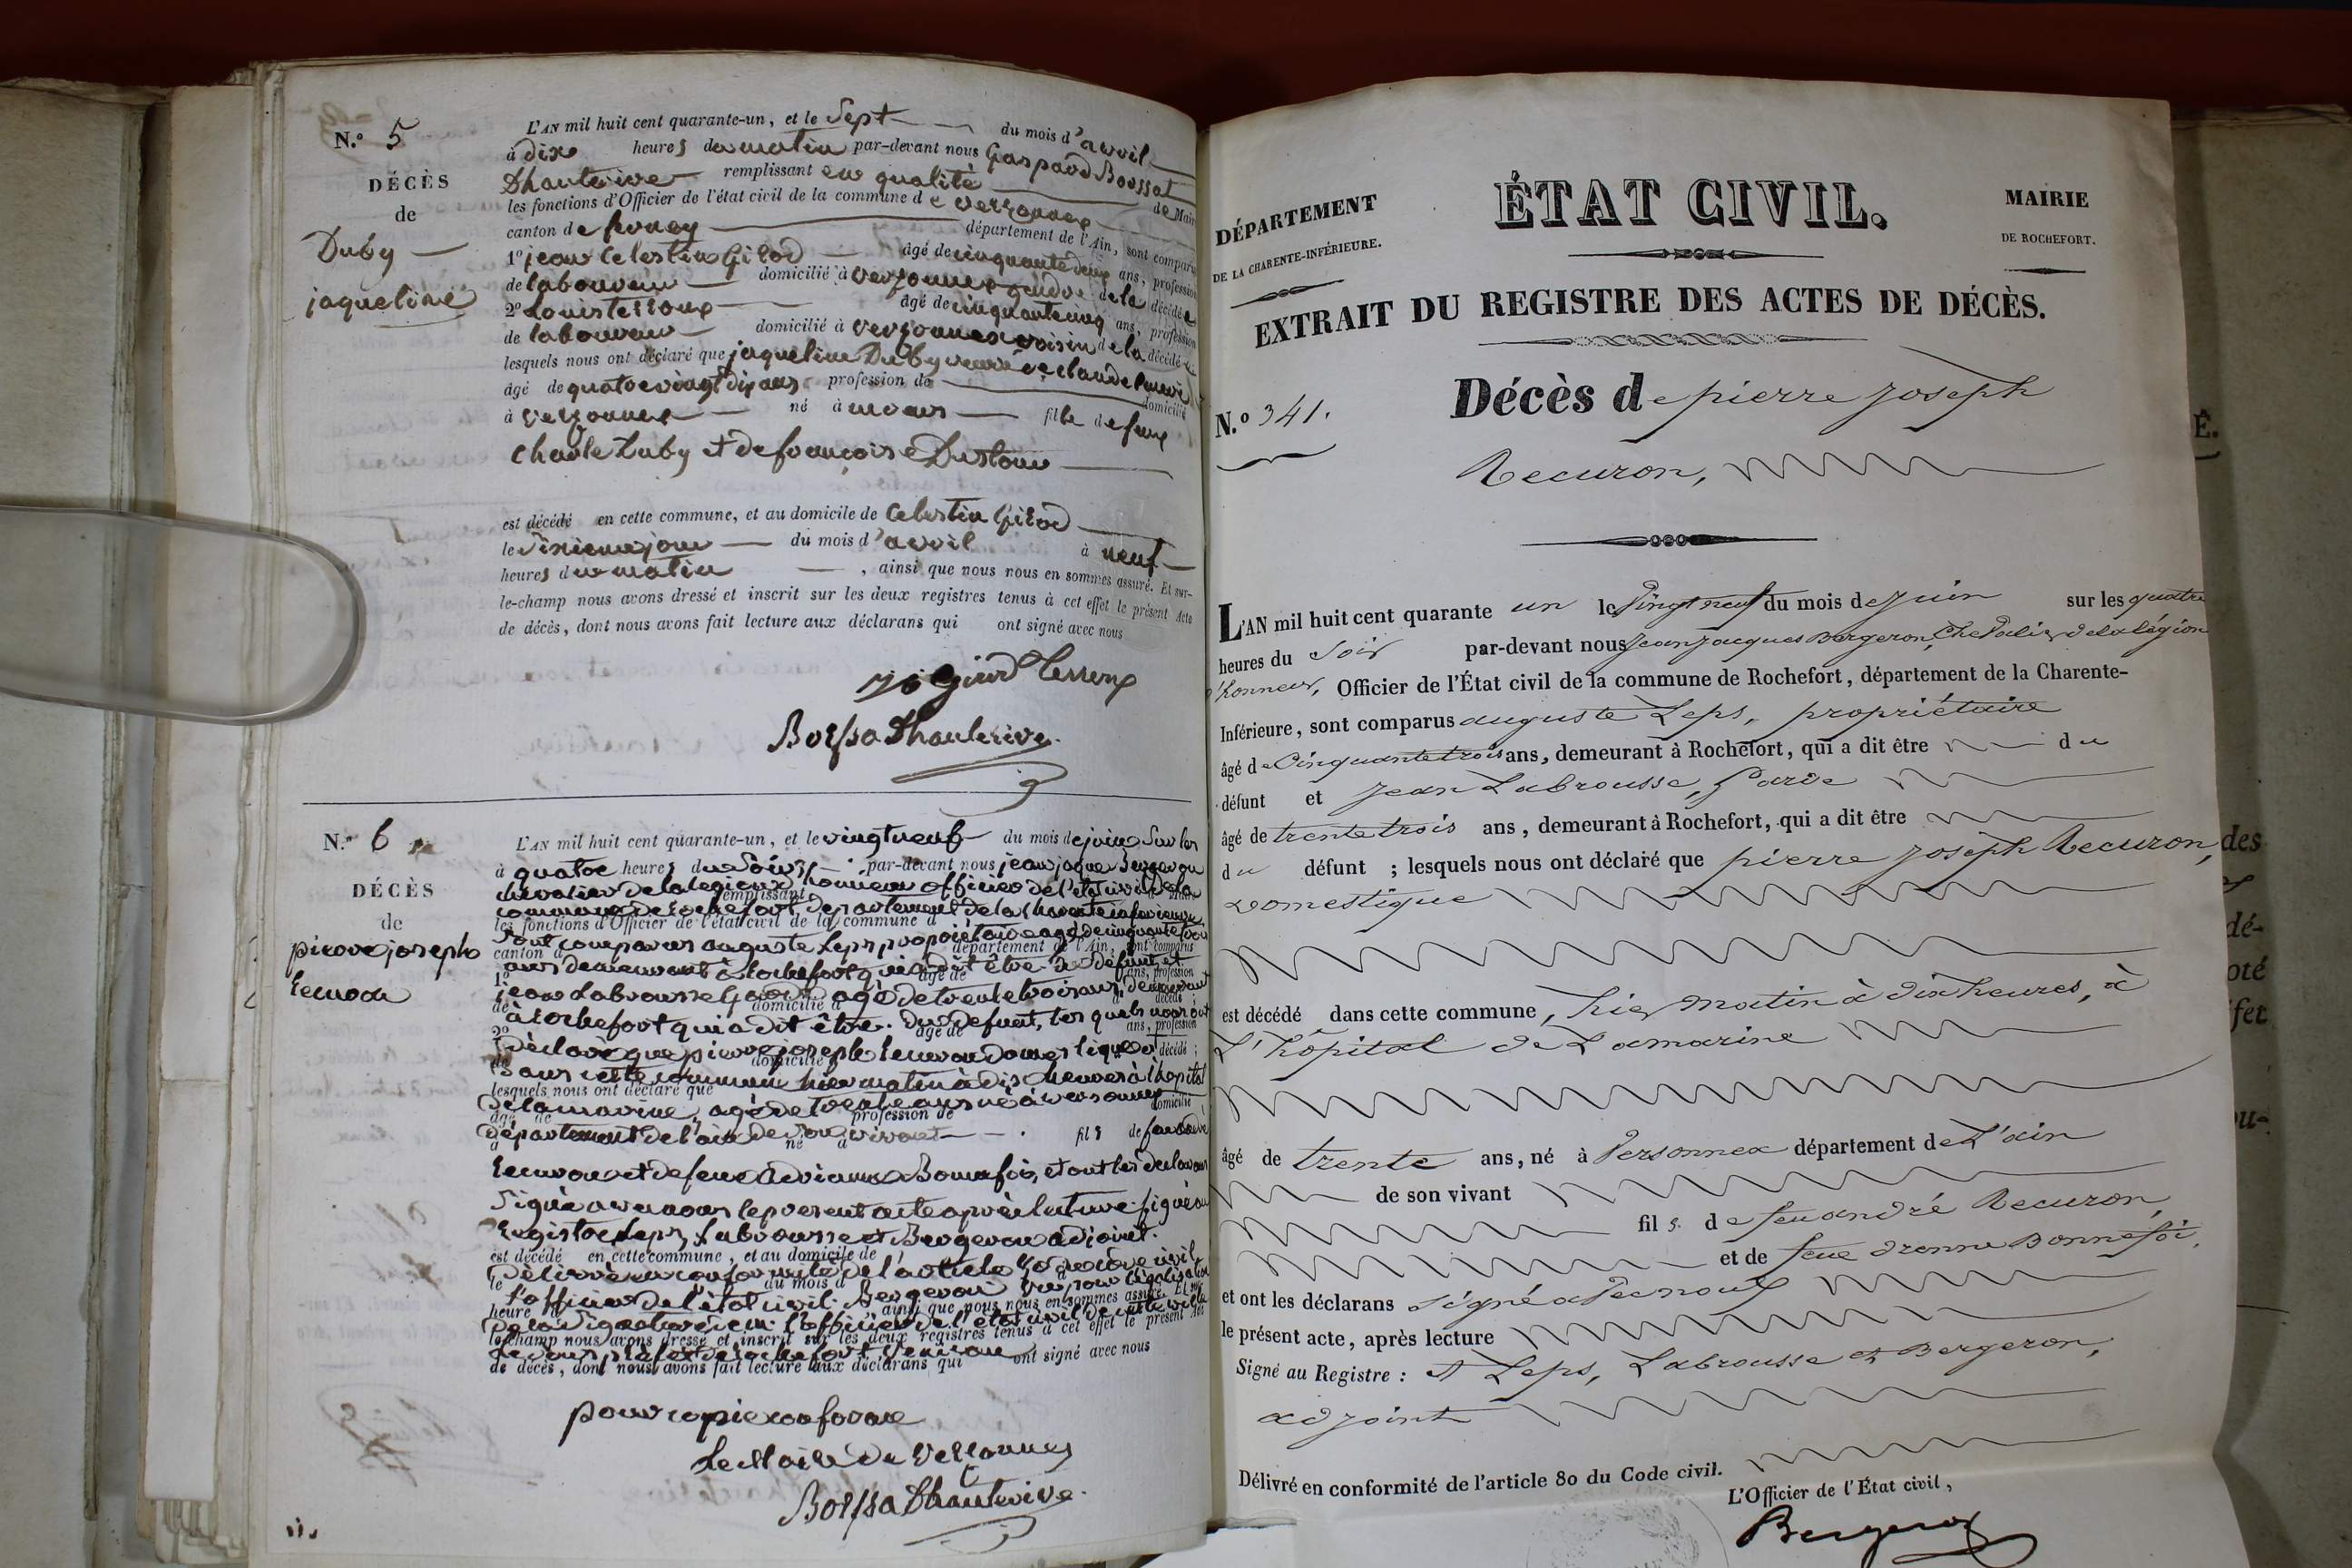 N.º 5
DÉCÈS
de
Duby
jaqueline
L'AN mil huit cent quarante-un, et le Sept du mois d'avril
à dix heures du matin par-devant nous Gaspard Boissat
Dhauterive remplissant en qualité de Maire
les fonctions d'Officier de l'état civil de la commune de versonnex
canton de ferney département de l'Ain, sont comparus
1º jean Celestin Girod âgé de cinquante deux ans, profession
de laboureur domicilié à versonnex gendre de la décédée
2º Louis tessoux âgé de cinquante cinq ans, profession
de laboureur domicilié à versonnex voisin de la décédée
lesquels nous ont déclaré que jaqueline Duby veuve de claude
âgé de quatre vingt dix ans profession de domicilié
à versonnex né à fille de feux
Charle Duby et de françoise
est décédé en cette commune, et au domicile de Celestin Girod
le Sixieme jour du mois d'avril à neuf
heures du matin, ainsi que nous nous en sommes assuré. Et sur-
le-champ nous avons dressé et inscrit sur les deux registres tenus à cet effet le présent Acte
de décès, dont nous avons fait lecture aux déclarans qui ont signé avec nous
Girod Tessoux
Boissa Dhauterive
N.º 6
DÉCÈS
de
pierre joseph
L'AN mil huit cent quarante-un, et le vingt neuf du mois de juin Sur les
à quatre heures du Soir par-devant nous jean jaque Bergeron
chevalier de la legion d honneur officier de l'état civil de la
remplissant
commune de Rochefort, departement de la Charente inferieure
les fonctions d'Officier de l'état civil de la commune d
sont comparus auguste Leps propriétaire agé de cinquante trois
canton d département de l'Ain, sont comparus
ans demeurant à Rochefort qui a dit être du défunt et
1º âgé de ans, profession
jean Labrousse Garde agé de trente trois ans, demeurant
de domicilié à décédé
à Rochefort qui a dit être. du defunt, les quels nous ont
2º âgé de ans, profession
déclaré que pierre joseph domestique est décédé ;
de domicilié
Dans cette commune hier matin à dix heures à l'hopital
lesquels nous ont déclaré que
De la marine, agé de trente ans né à versonnex
âgé de profession de domicilié
département de l'ain de son vivant fils de feu andré
à né à
et de feue Bonnefoi, et ont les déclarans
Signé avec nous le present acte après lecture Signé au
Registre Leps, Labrousse et Bergeron adjoint.
est décédé en cette commune, et au domicile de
Délivré en conformité de l'article 80 du code civil
le du mois d
L'officier de l'état civil. Bergeron vu pour légalisation
heure ainsi que nous nous en sommes assuré. Et sur-
De la Signature l'officier de l'état civil de cette ville
le-champ nous avons dressé et inscrit sur les deux registres tenus à cet effet le présent Acte
de décès, dont nous avons fait lecture aux déclarans qui ont signé avec nous
pour copie conforme
Le Maire de Versonnex
Boissa Dhauterive
DÉPARTEMENT
DE LA CHARENTE-INFÉRIEURE.
ÉTAT CIVIL.
MAIRIE
DE ROCHEFORT.
EXTRAIT DU REGISTRE DES ACTES DE DÉCÈS.
N.º 341.
Décès de pierre joseph
Recuron,
L'AN mil huit cent quarante un le vingt neuf du mois de juin sur les quatre
heures du Soir par-devant nous jean jacques Bergeron, Chevalier de la légion
d'honneur, Officier de l'État civil de la commune de Rochefort, département de la Charente-
Inférieure, sont comparus auguste Leps, propriétaire
âgé de Cinquante trois ans, demeurant à Rochefort, qui a dit être du
défunt et Jean Labrousse, Garde
âgé de trente trois ans, demeurant à Rochefort, qui a dit être
du défunt ; lesquels nous ont déclaré que pierre joseph Recuron,
domestique
est décédé dans cette commune, hier matin à dix heures, à
L'hôpital de La marine
âgé de trente ans, né à Versonnex département de L'ain
de son vivant
fils de feu andré Recuron,
et de feue Bonnefoi,
et ont les déclarans Signé avec nous
le présent acte, après lecture
Signé au Registre : A Leps, Labrousse et Bergeron,
adjoint
Délivré en conformité de l'article 80 du Code civil.
L'Officier de l'État civil,
Bergeron
É.
des
dé-
oté
fet
ou-